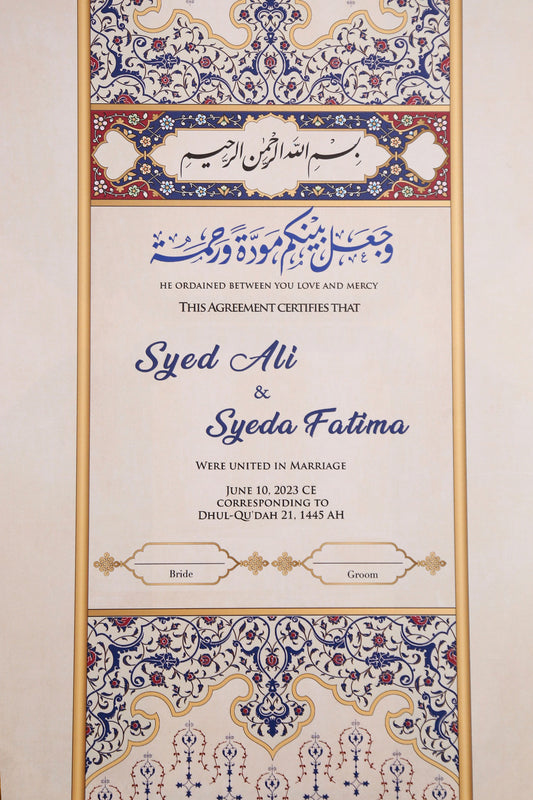 بِسْمِ اللهِ الرَّحْمٰنِ الرَّحِيمِ
وَجَعَلَ بَيْنَكُمْ مَوَدَّةً وَرَحْمَةً
HE ORDAINED BETWEEN YOU LOVE AND MERCY
THIS AGREEMENT CERTIFIES THAT
Syed Ali
&
Syeda Fatima
WERE UNITED IN MARRIAGE
JUNE 10, 2023 CE
CORRESPONDING TO
DHUL-QU'DAH 21, 1445 AH
Bride
Groom